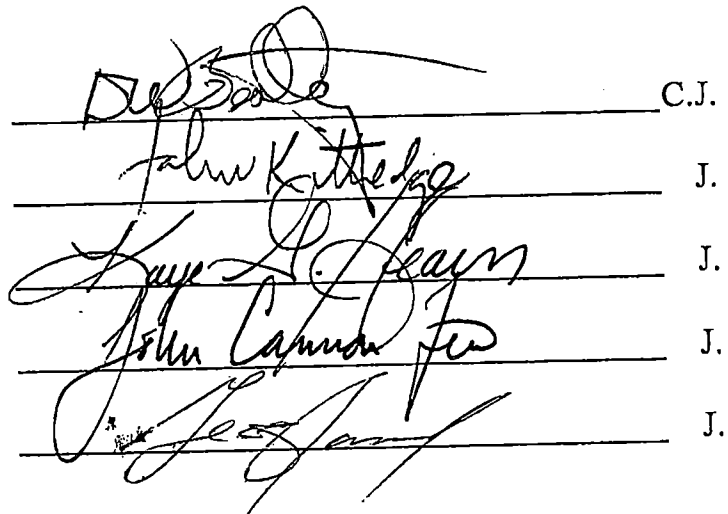 C.J.
John Kittredge J.
Kaye G. Hearn J.
John Cannon Few J.
J.